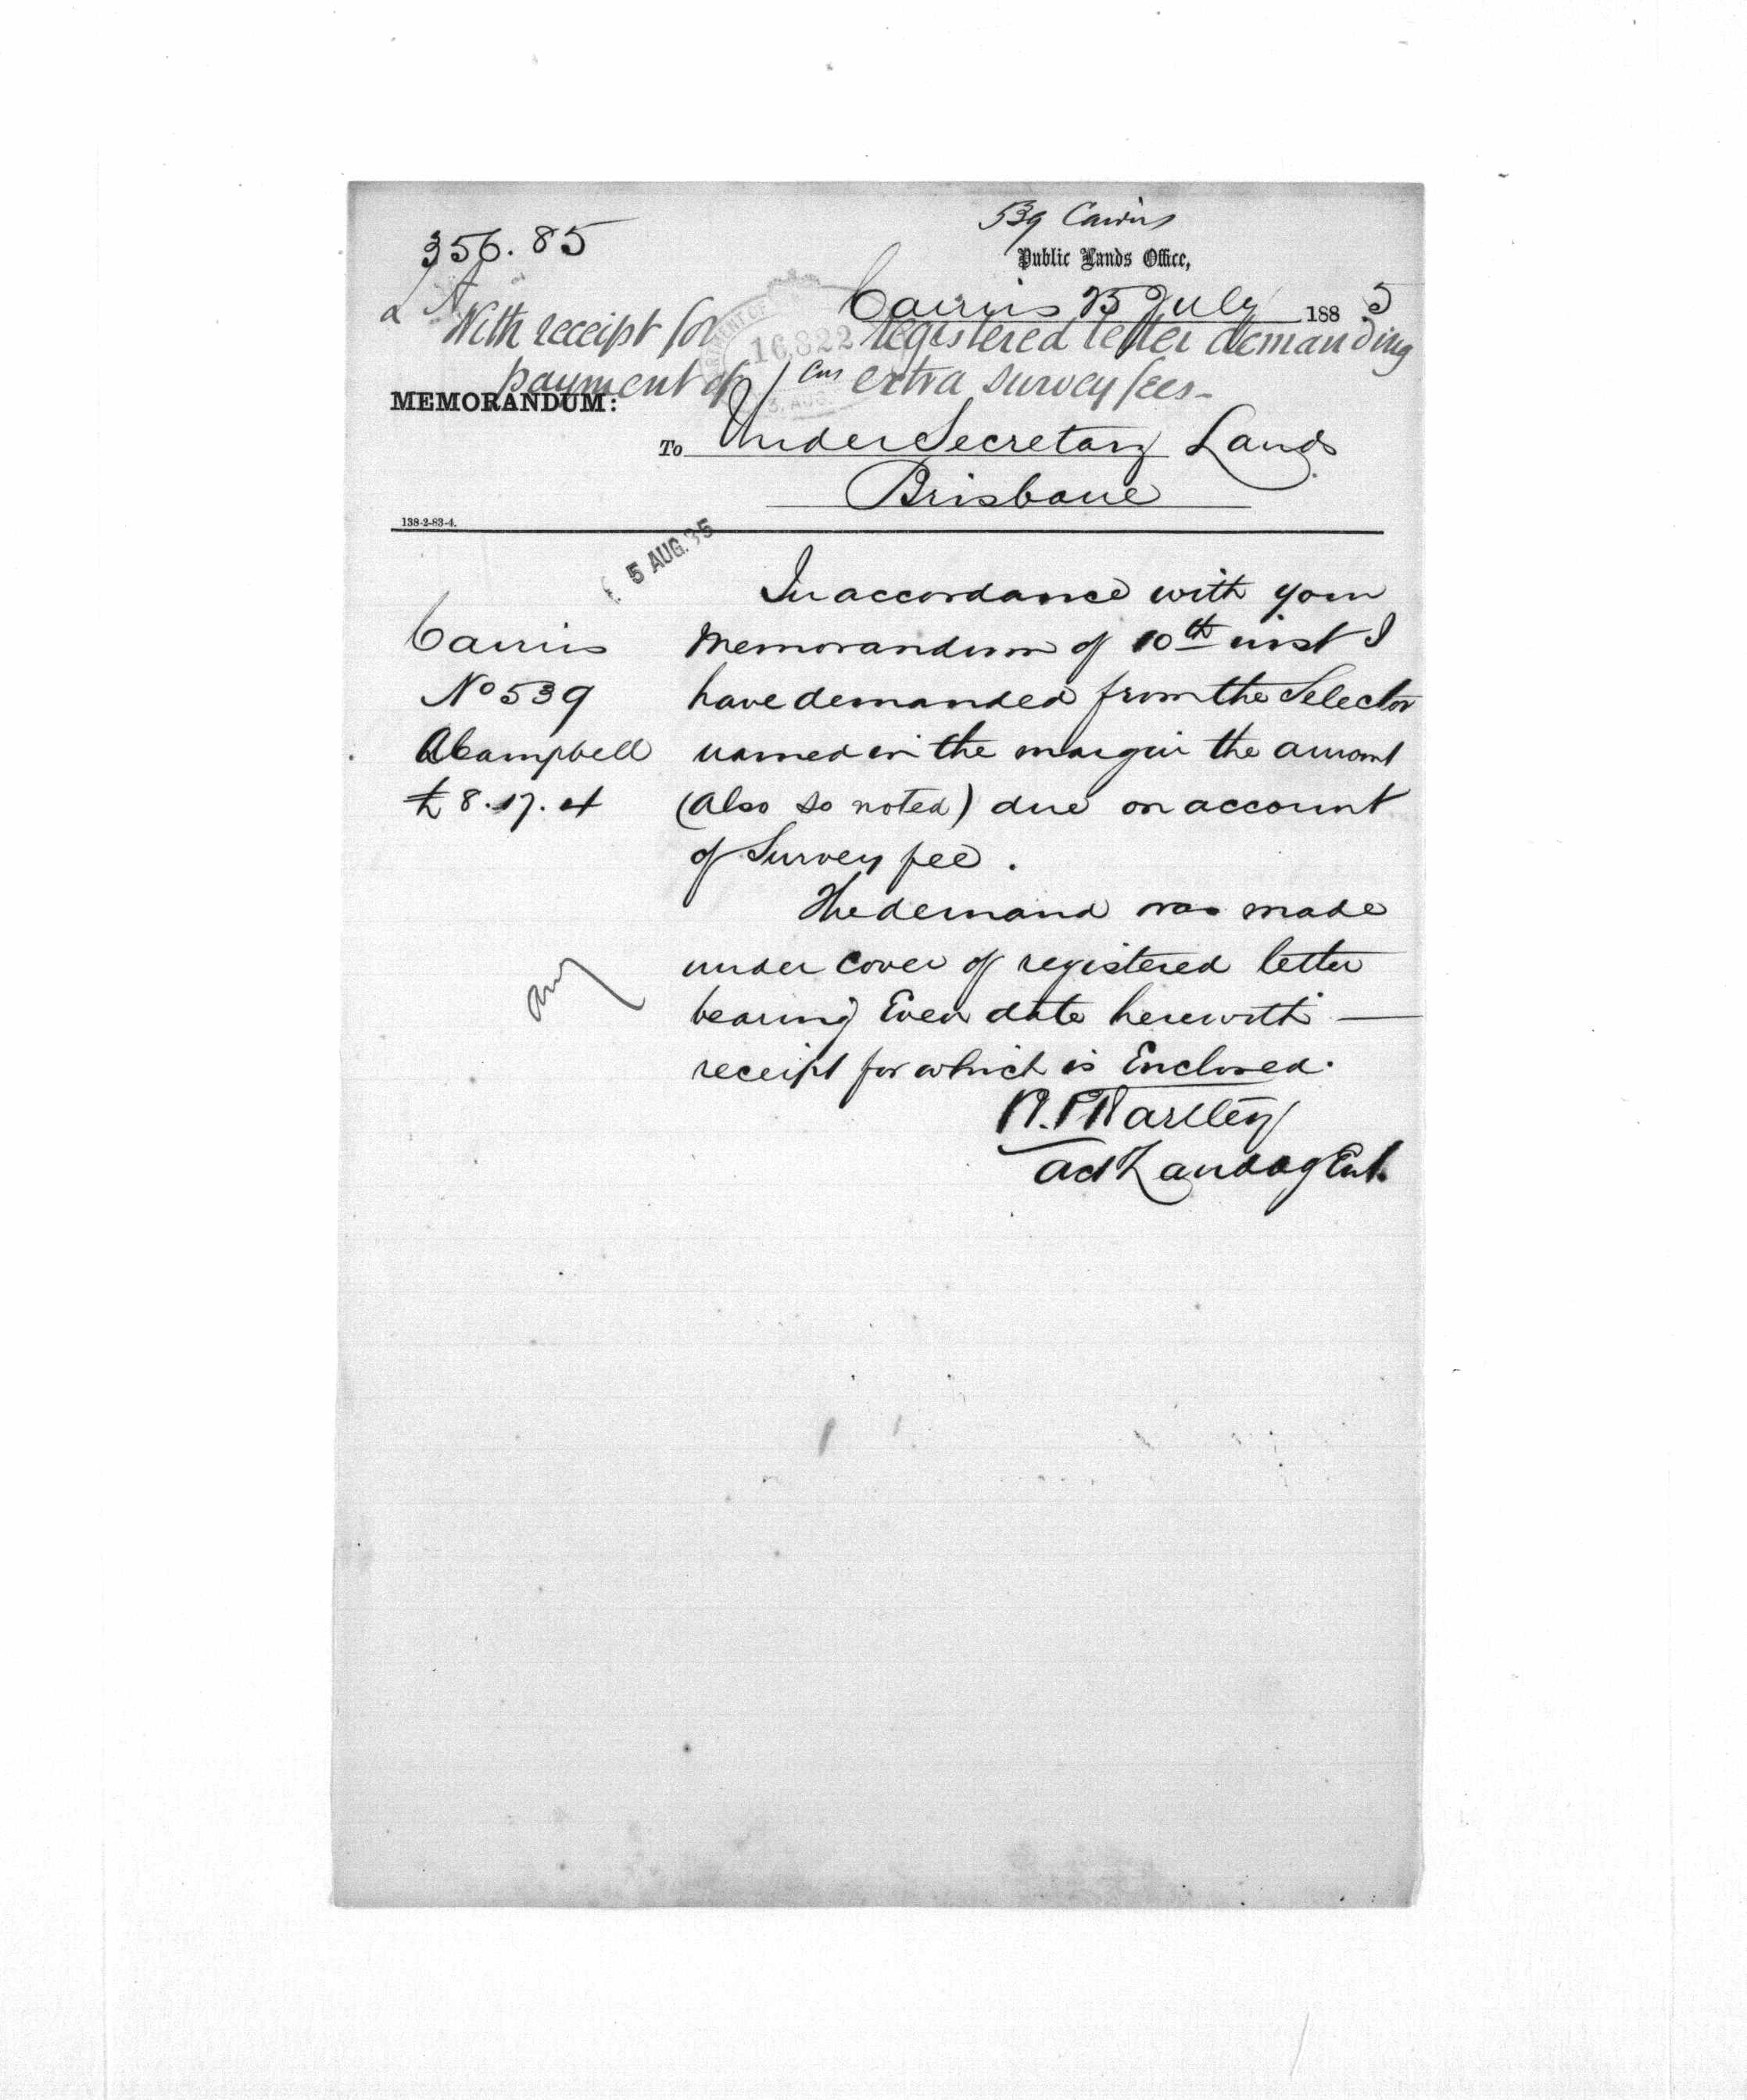 539 Cairns
356.85
Public Lands Office,
Cairns 25 July 1885
With receipt for registered letter demanding
payment of extra survey fees -
16822
MEMORANDUM:
To Under Secretary Lands
Brisbane
138-2-83-4.
5 AUG. 85
In accordance with your
Cairns
Memorandum of 10th inst I
No 539
have demanded from the Selector
A Campbell
named in the margin the amount
£8.17.4
(also so noted) due on account
of Survey fee.
The demand was made
under cover of registered letter
bearing Even date herewith —
receipt for which is Enclosed.
Hartley
Act Land Agent.